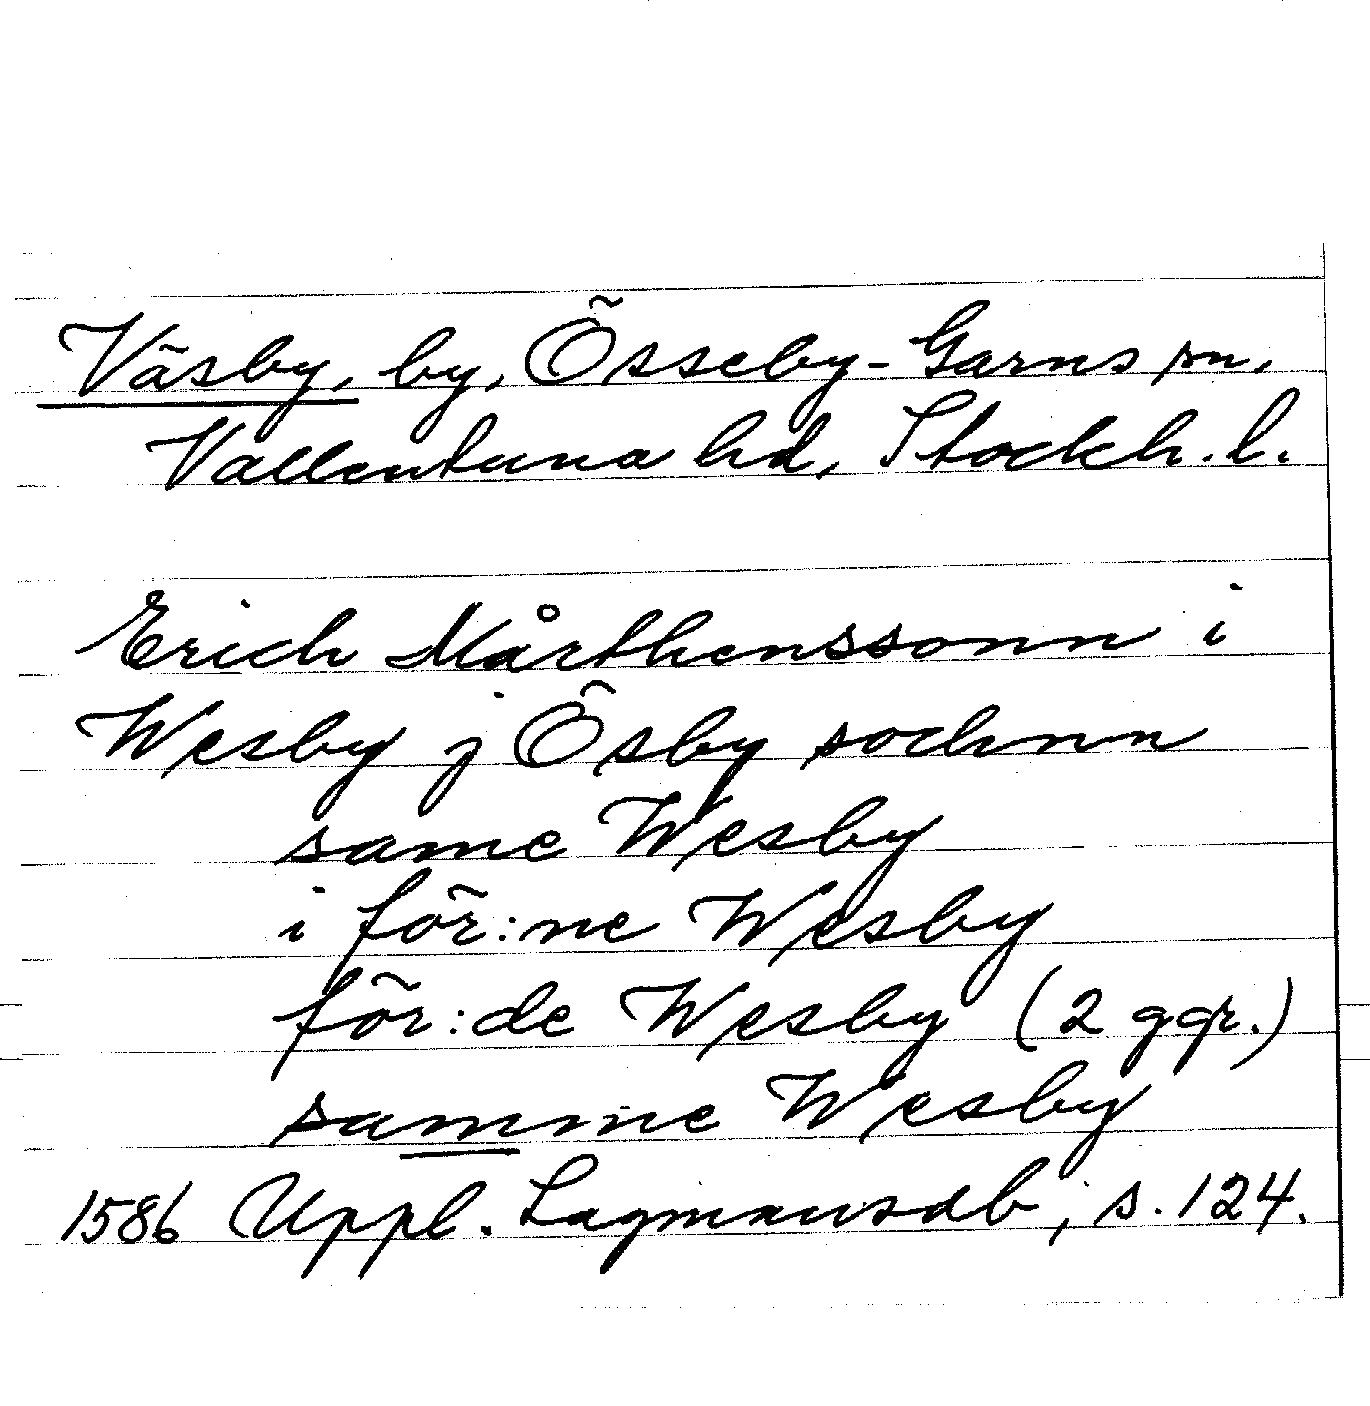 Väsby, by, Össeby-Garns sn,
Vallentuna hd, Stockh. l.
Erich Mårthenssonn i
Wesby j Ösby sochnn
same Wesby
i för:ne Wesby
för:de Wesby (2 ggr.)
samme Wesby
1586 Uppl. Lagmansdb, s. 124.